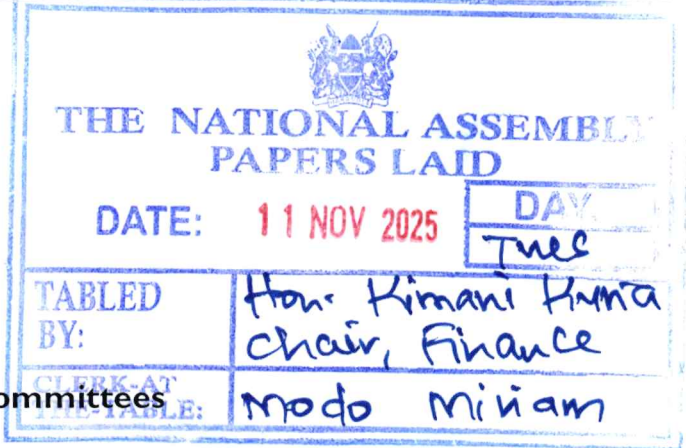 THE NATIONAL ASSEMBLY
PAPERS LAID
DATE: 11 NOV 2025 DAY.
Tues
TABLED BY: Hon. Kimani Kuria
Chair, Finance
ommittees
CLERK-AT THE-TABLE: Modo Miriam